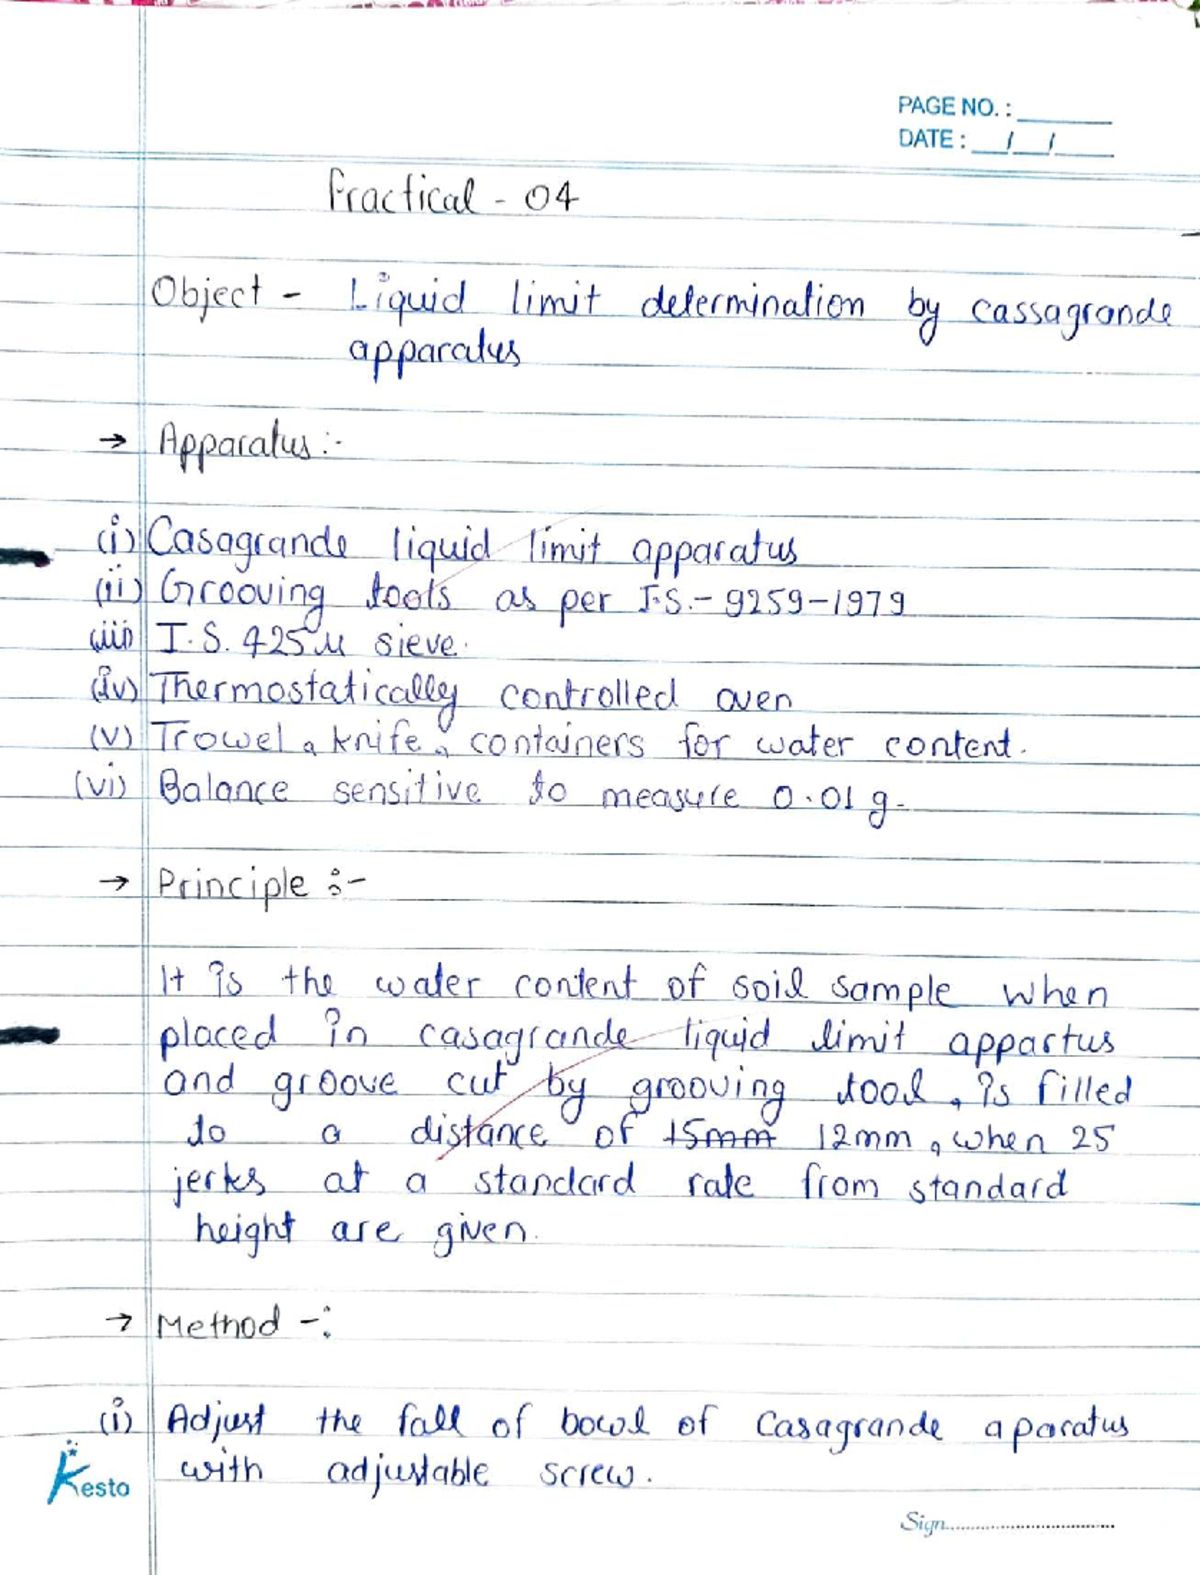 PAGE NO. :
DATE : / /
Practical - 04
Object - Liquid limit determination by cassagrande
apparatus
→ Apparatus :-
(i) Casagrande liquid limit apparatus
(ii) Grooving tools as per I.S.- 9259-1979
(iii) I.S. 425 μ sieve.
(iv) Thermostatically controlled oven
(v) Trowel, knife, containers for water content.
(vi) Balance sensitive to measure 0.01 g.
→ Principle :-
It is the water content of soil sample when
placed in casagrande liquid limit appartus
and groove cut by grooving tool, is filled
to a distance of 15mm 12mm, when 25
jerks at a standard rate from standard
height are given.
→ Method -:
(i) Adjust the fall of bowl of Casagrande aparatus
with adjustable screw.
Kesto
Sign